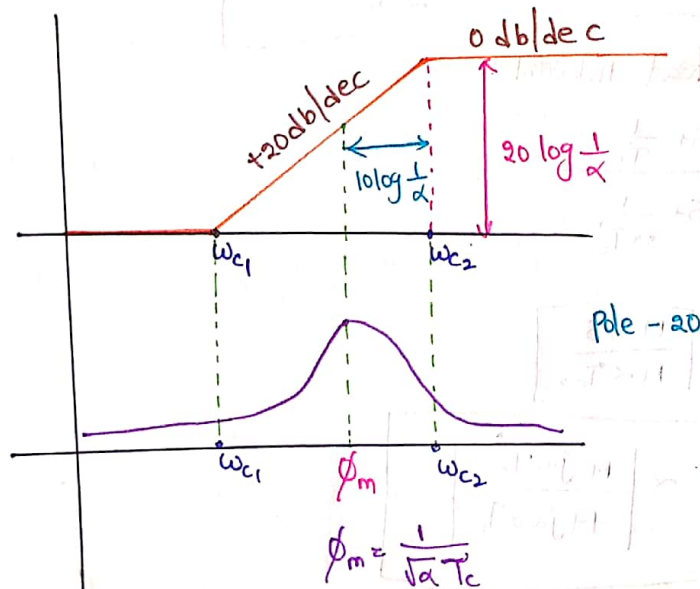 0 db/dec
+20db/dec
10log 1/α
20 log 1/α
ωc1
ωc2
Pole - 20
ωc1
ϕm
ωc2
ϕm = 1/√α Tc